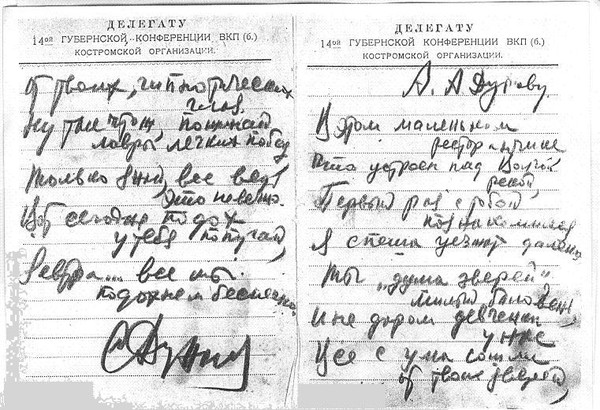 ДЕЛЕГАТУ
14ой ГУБЕРНСКОЙ КОНФЕРЕНЦИИ ВКП (б.)
КОСТРОМСКОЙ ОРГАНИЗАЦИИ.
От твоих, гипнотических
глаз.
Ну так что ж пожинай
лавры легких побед
Только знай, все ведь
это неверно.
Вот сегодня подох
у тебя попугай,
Завтра... все мы
подохнем
ДЕЛЕГАТУ
14ой ГУБЕРНСКОЙ КОНФЕРЕНЦИИ ВКП (б.)
КОСТРОМСКОЙ ОРГАНИЗАЦИИ.
А. А Дурову.
В этом маленьком
ресторанчике
Что устроен над Волгой
рекой
Первый раз с тобой
познакомился
Я спеша уезжат
Ты "дума зверей"
милый баловень
И не даром девченки
у нас
Все с ума сошли
от твоих зверей,